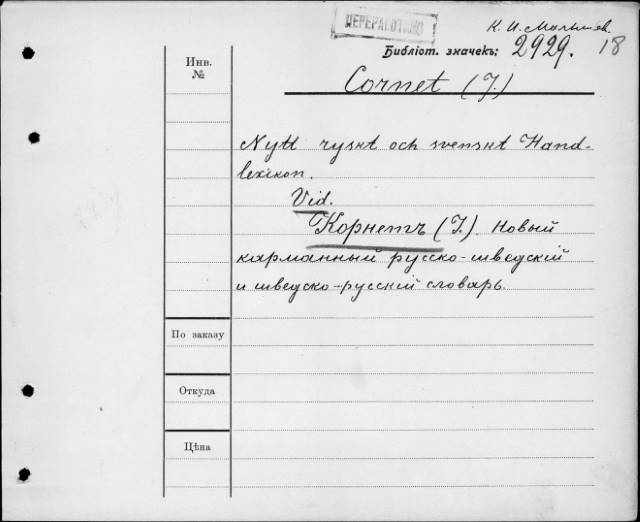 ПЕРЕРАБОТАНО
К. И. Малышев.
Бібліот. значекъ: 2929. 18
Инв.
№
Cornet (J.)
Nytt ryskt och svenskt Hand-
lexikon.
Vid.
Корнетъ (I.). Новый
карманный русско-шведскій
и шведско-русскій словарь.
По заказу
Откуда
Цѣна